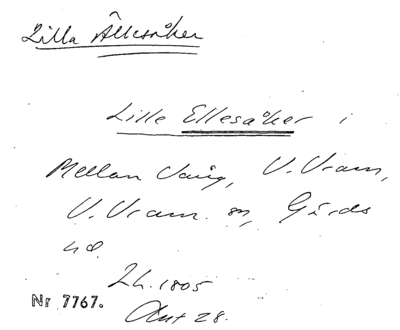 Lilla Ällesåker
Lille Ellesåker i
Mellan Vång, V. Vram,
V. Vram sn, Gärds
hd.
Lh. 1805
Akt 28.
Nr 7767.